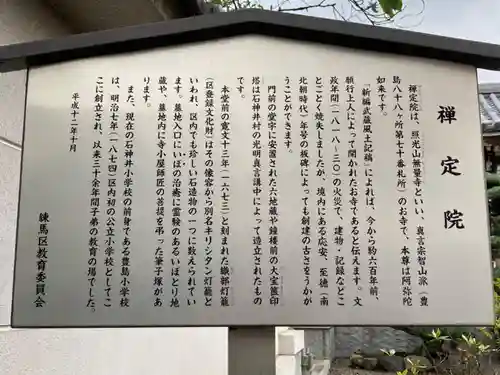 禅定院
禅定院は、照光山無量寺といい、真言宗智山派(豊
島八十八ヶ所第七十番札所)のお寺で、本尊は阿弥陀
如来です。
『新編武蔵風土記稿』によれば、今から約六百年前、
願行上人によって開かれたお寺であると伝えます。文
政年間(一八一八〜三〇)の火災で、建物・記録などこ
とごとく焼失しましたが、境内にある応安、至徳(南
北朝時代)年号の板碑によっても創建の古さをうかが
うことができます。
門前の堂宇に安置された六地蔵や鐘楼前の大宝篋印
塔は石神井村の光明真言講中によって造立されたもの
です。
本堂前の寛文十三年(一六七三)と刻まれた織部灯籠
(区登録文化財)はその像容から別名キリシタン灯籠と
いわれ、区内でも珍しい石造物の一つに数えられてい
ます。墓地入口にいぼの治癒に霊験のあるいぼとり地
蔵や、墓地内に寺小屋師匠の菩提を弔った筆子塚があ
ります。
また、現在の石神井小学校の前身である豊島小学校
は、明治七年(一八七四)区内初の公立小学校としてこ
こに創立され、以来三十余年間子弟の教育の場でした。
平成十二年十月
練馬区教育委員会